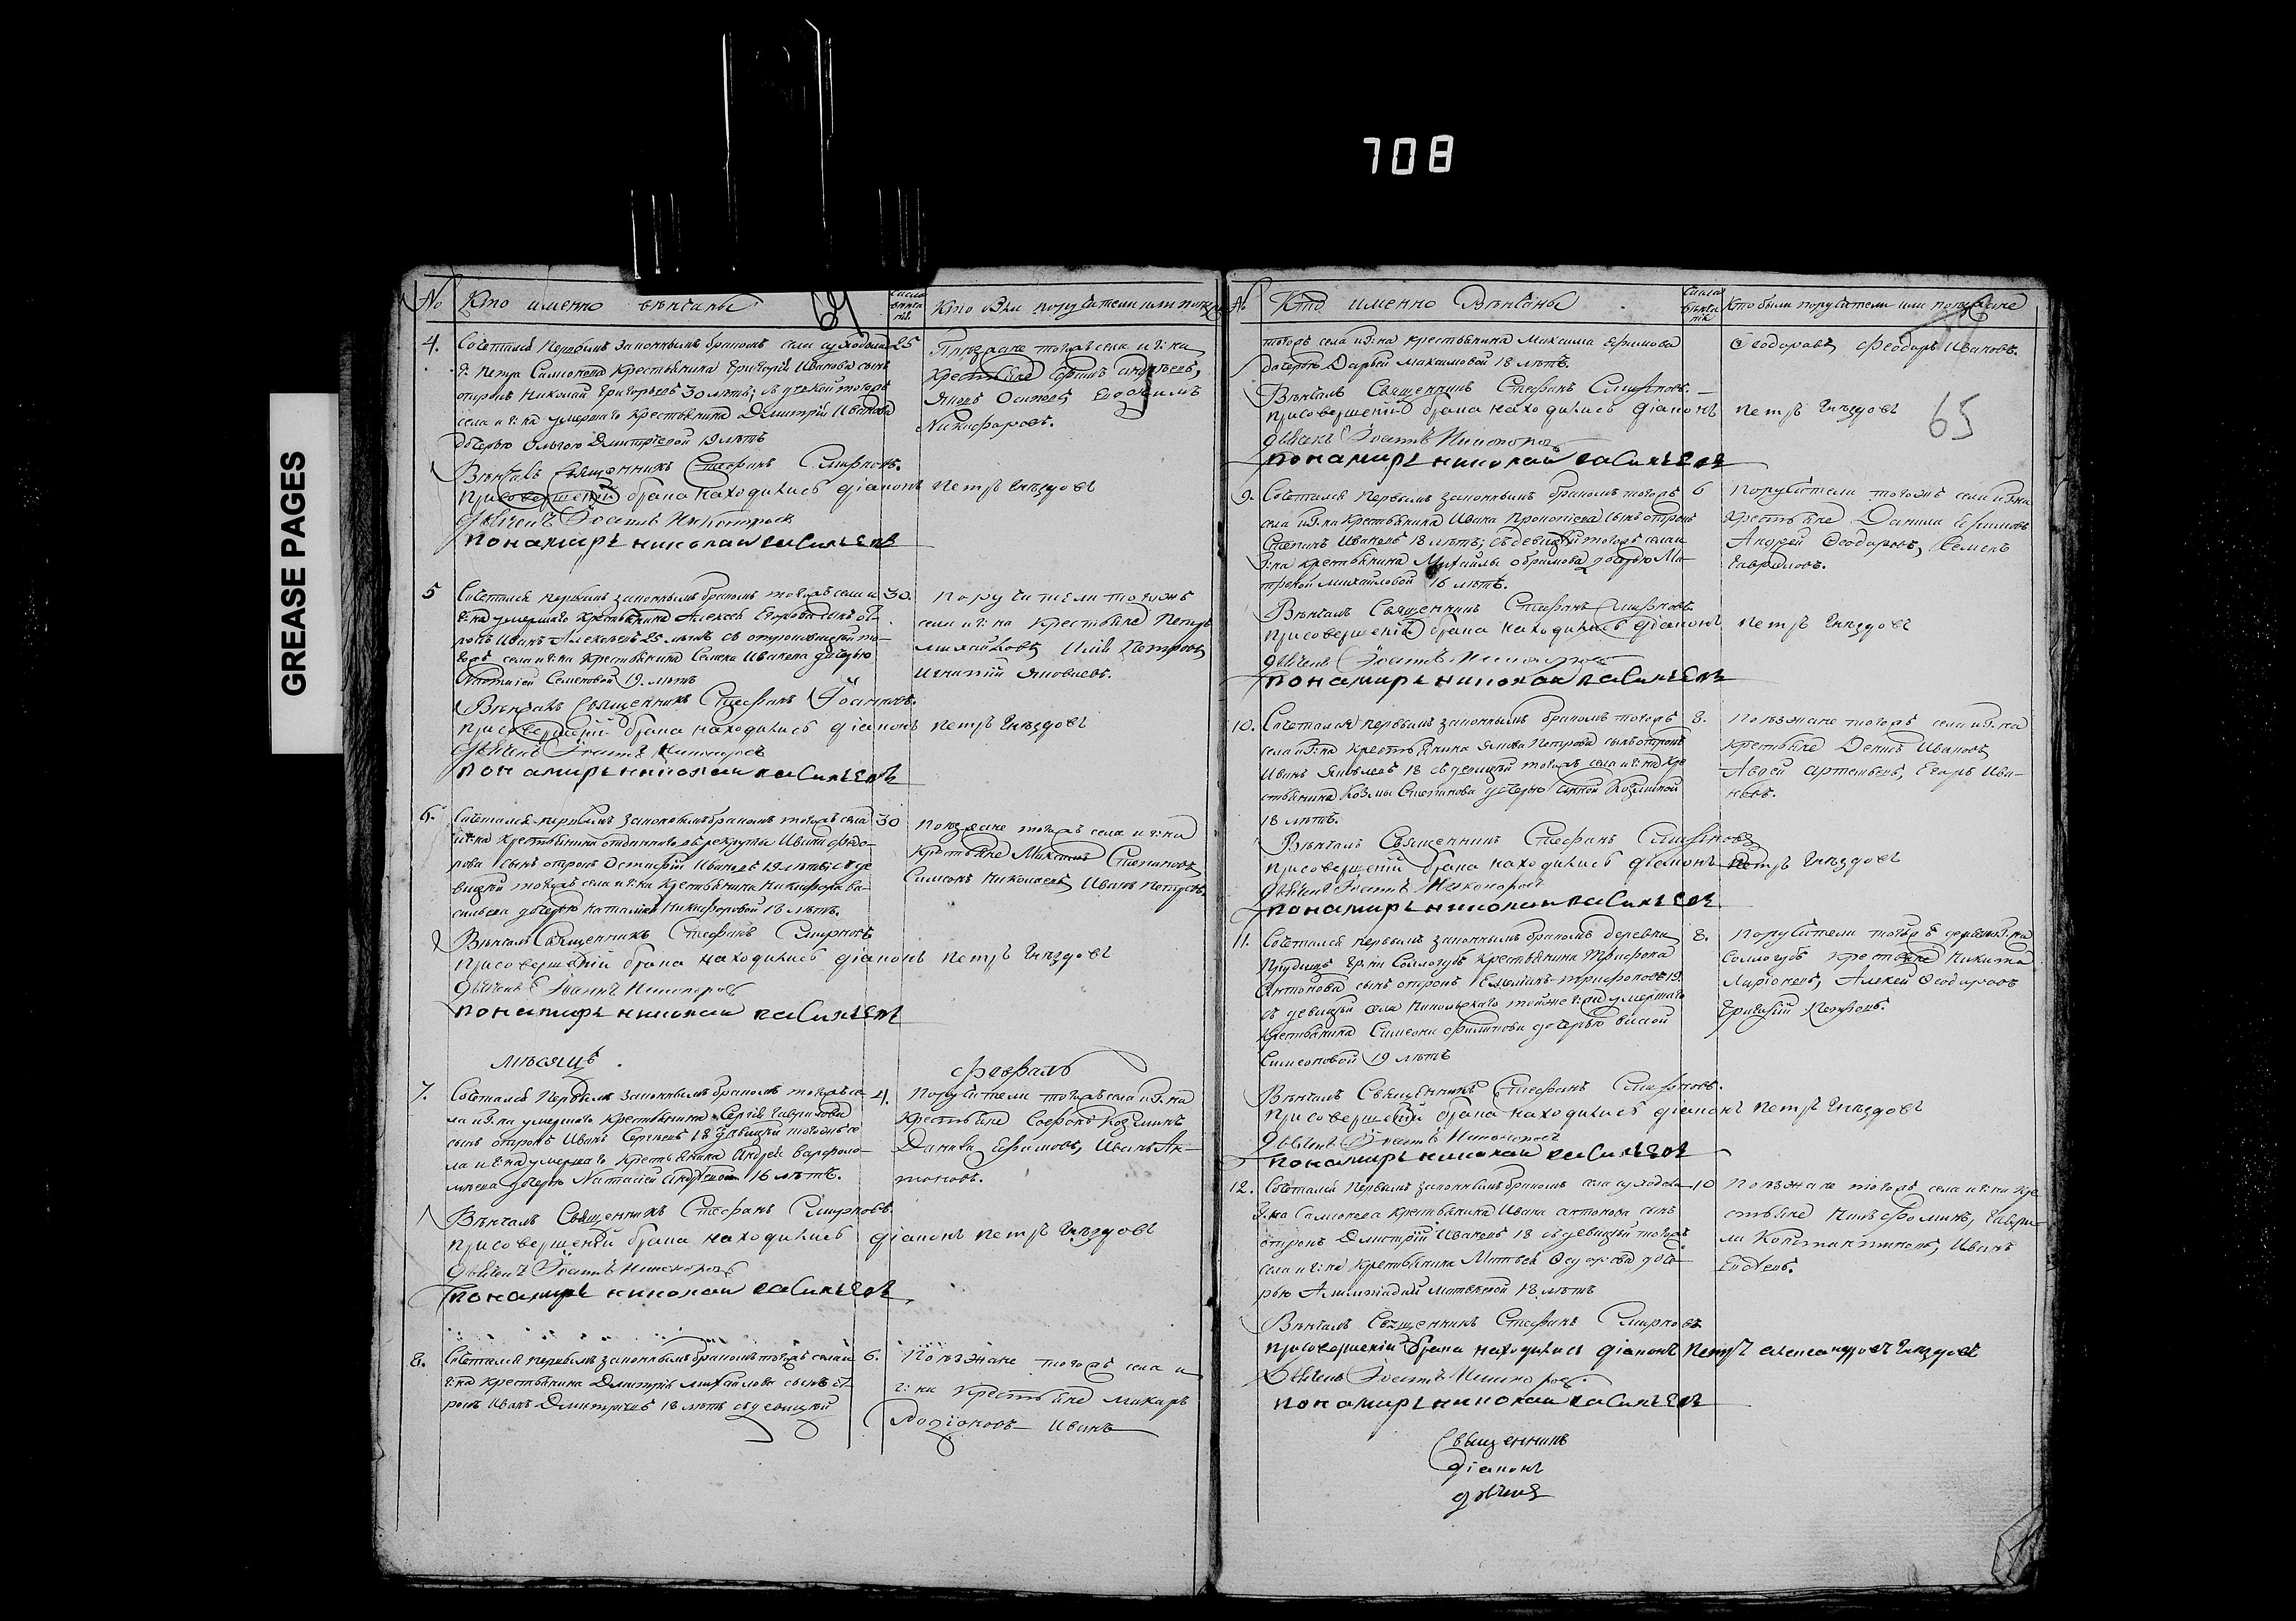 708
GREASE PAGES
No Кто именно венчаны 64 Кто были поручители или поезжане
4. Сочетался первымъ законнымъ бракомъ села 25
г: Петра Самсонова крестьянина Григорій Иванова сынъ
отрокъ Николай Григорьевъ 30 летъ; съ девкой тогожъ
села и г:на умершаго крестьянина Дмитрій Иванова
дочерью Ольгою Дмитріевой 19 летъ
Поезжане тогожъ села и г:на
крестьяне Ефимъ Андреевъ,
Яковъ Осиповъ Евдокимъ
Никифоровъ.
Венчалъ Священникъ Стефанъ Смирновъ.
При совершеніи брака находились діаконъ Петръ Гнездовъ
дьячекъ Іоаннъ Никоноровъ
пономарь николай васильевъ
5 Сочетался первымъ законнымъ бракомъ тогожъ села и 30.
г:на умершаго крестьянина Алексея Егорова сынъ от-
рокъ Иванъ Алексеевъ 25 летъ съ отроковицей то-
гожъ села и г:на крестьянина Семена Иванова дочерью
Настасіей Семеновой 19. летъ
Поручители тогожъ
села и г:на крестьяне Петръ
Михайловъ Илія Петровъ
Игнатій Яковлевъ.
Венчалъ Священникъ Стефанъ
При совершеніи брака находились діаконъ Петръ Гнездовъ
дьячекъ Іоаннъ Никоноровъ
пономарь николай васильевъ
6. Сочетался первымъ законнымъ бракомъ тогожъ села 30
и г:на крестьянина отданнаго въ рекруты Ивана Федо-
рова сынъ отрокъ Остафій Ивановъ 19 летъ; съ де-
вицей тогожъ села и г:на крестьянина Никифора Ва-
сильева дочерью Наталіей Никифоровой 18 летъ.
Поезжане тогожъ села и г:на
крестьяне Максимъ Степановъ
Симеонъ Николаевъ Иванъ Петровъ
Венчалъ Священникъ Стефанъ Смирновъ
При совершеніи брака находились діаконъ Петръ Гнездовъ
дьячекъ Іоаннъ Никоноровъ
пономарь николай васильевъ
месяцъ февраль
7. Сочетался первымъ законнымъ бракомъ тогожъ се- 4.
ла и г:на умершаго крестьянина Сергія Гаврилова
сынъ отрокъ Иванъ Сергеевъ 18 съ девицей тогожъ се-
ла и г:на умершаго крестьянина Андрея Варфоло-
меева дочерью Настасіей Андреевой 16 летъ.
Поручители тогожъ села и г:на
крестьяне Софронъ Козминъ
Данила Ефимовъ, Иванъ Ан-
тоновъ.
Венчалъ Священникъ Стефанъ Смирновъ
При совершеніи брака находились діаконъ Петръ Гнездовъ
дьячекъ Іоаннъ Никоноровъ
пономарь николай васильевъ
8. Сочетался первымъ законнымъ бракомъ тогожъ села и 6.
г:на крестьянина Дмитрія Михайлова сынъ от-
рокъ Иванъ Дмитріевъ 18 летъ съ девицей
Поезжане тогожъ села и
г:на крестьяне Макаръ
Родіоновъ Иванъ
No Кто именно Венчаны Кто были поручители или поезжане
тогожъ села и г:на крестьянина Максима Ефимова
дочерью Дарьей Максимовой 18 летъ.
Ѳеодоровъ, Феодоръ Ивановъ.
65
Венчалъ Священникъ Стефанъ Смирновъ.
При совершеніи брака находились діаконъ Петръ Гнездовъ
дьячекъ Іоаннъ Никоноровъ
пономарь николай васильевъ
9. Сочетался первымъ законнымъ бракомъ тогожъ 6
села и г:на крестьянина Ивана Прокопіева сынъ отрокъ
Степанъ Ивановъ 18 летъ; съ девицей тогожъ села и
г:на крестьянина Михайлы Ефимова дочерью Ма-
треной Михайловой 16 летъ.
Поручители тогожъ села и г:на
крестьяне Данила Ефимовъ
Андрей Ѳеодоровъ, Семенъ
Гавриловъ.
Венчалъ Священникъ Стефанъ Смирновъ
При совершеніи брака находились діаконъ Петръ Гнездовъ
дьячекъ Іоаннъ Никоноровъ
пономарь николай васильевъ
10. Сочетался первымъ законнымъ бракомъ тогожъ 8.
села и г:на крестьянина Якова Петрова сынъ отрокъ
Иванъ Яковлевъ 18 съ девицей тогожъ села и г:на кре-
стьянина Козмы Степанова дочерью Анной Козминой
18 летъ.
Поезжане тогожъ села и г:на
крестьяне Денисъ Ивановъ
Авдей Артемьевъ, Егоръ Ива-
новъ.
Венчалъ Священникъ Стефанъ Смирновъ
При совершеніи брака находились діаконъ Петръ Гнездовъ
дьячекъ Іоаннъ Никоноровъ
пономарь николай васильевъ
11. Сочетался первымъ законнымъ бракомъ деревни 8.
Прудищъ гр:ни Соллогубъ крестьянина Трифона
Антонова сынъ отрокъ Емеліянъ Трифоновъ 19
съ девицей села Никольскаго тойже г:жи умершаго
крестьянина Симеона Филипова дочерью
Симеоновой 19 летъ
Поручители тогожъ деревни г:на
Соллогубъ крестьяне Никита
Ларіоновъ, Алексей Ѳеодоровъ
Григорій Петровъ.
Венчалъ Священникъ Стефанъ Смирновъ.
При совершеніи брака находились діаконъ Петръ Гнездовъ
дьячекъ Іоаннъ Никоноровъ
пономарь николай васильевъ
12. Сочетался первымъ законнымъ бракомъ села 10
г:на Самсонова крестьянина Ивана Антонова сынъ
отрокъ Дмитрій Ивановъ 18 съ девицей тогожъ
села и г:на крестьянина Матвея Ѳедорова доче-
рью Матвеевой 18 летъ
Поезжане тогожъ села и г:на кре-
стьяне Фоминъ, Гаври-
ла Константиновъ, Иванъ
Венчалъ Священникъ Стефанъ Смирновъ
При совершеніи брака находились діаконъ Петръ александровъ Гнездовъ
дьячекъ Іоаннъ Никоноровъ.
пономарь николай васильевъ
Священникъ
діаконъ
дьячекъ